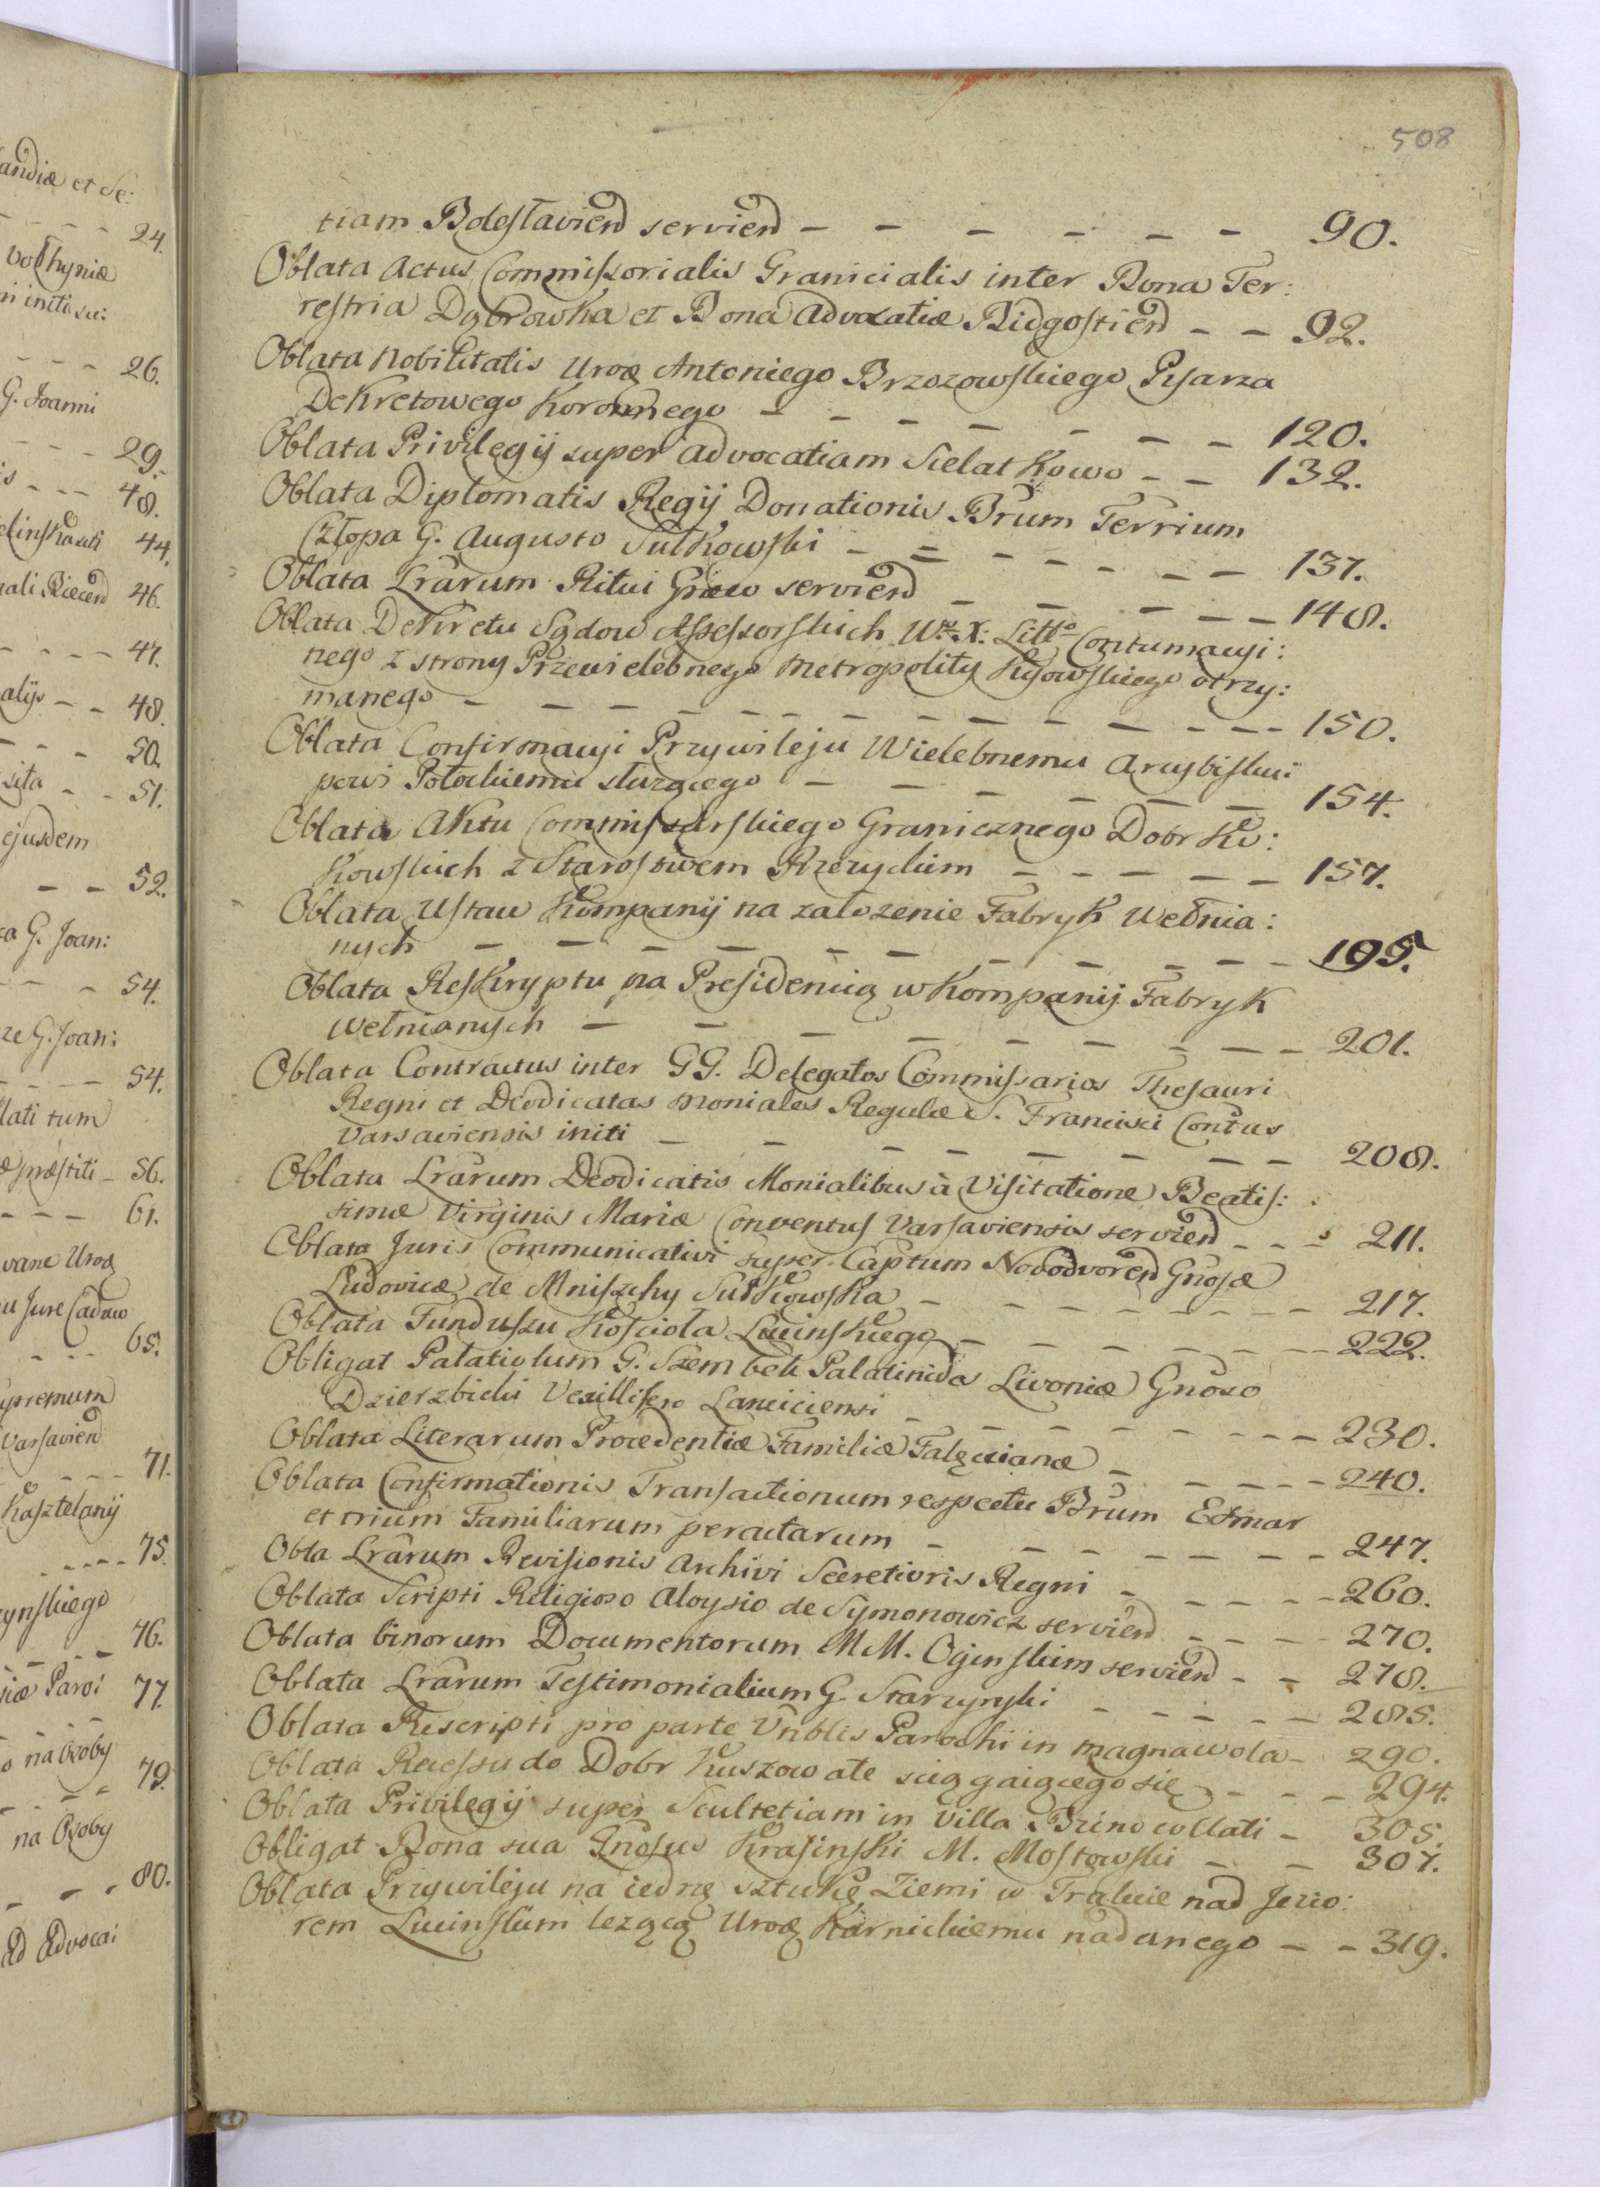 508
andiæ et Se:
24.
Volhyniæ
26.
G. Joanni
29.
40.
44.
46.
47.
alijs - - 48.
50.
51.
ejusdem
- - 52.
G. Joan:
54.
G. Joan:
54.
lati tum
56.
61.
Jure Caduco
65.
upremum
Varsavien
71.
Kasztelanij
75.
76.
77.
na Osoby
79.
na Osoby
80.
Ad Advoca:
tiam Boleslavien servien - - - - - - 90.
Oblata Actus Commissorialis Granicialis inter Bona Ter:
restria Dąbrowka et Bona Advocatiæ Bidgostien - - 92.
Oblata Nobilitatis Uroę Antoniego Brzozowskiego Pisarza
Dekretowego Koronnego - - - - - - - 120.
Oblata Privilegij super Advocatiam Sielatkowo - - 132.
Oblata Diplomatis Regij Donationis Brum Terrium
Człopa G. Augusto Sulkowski - - - - - - - 137.
Oblata Lrarum Ritui Græco servien - - - - - 140.
Oblata Dekretu Sądow Assessorskich W. X. Litto Contumacyi:
nego z strony Przewielebnego Metropolity Kijowskiego otrzy:
manego - - - - - - - - - - - - 150.
Oblata Confirmacyi Przywileju Wielebnemu Arcybisku:
powi Potockiemu służącego - - - - - - 154.
Oblata Aktu Commissarskiego Granicznego Dobr
Kowskich z Starostwem - - - - - 157.
Oblata Ustaw Kompanij na założenie Fabryk Wełnia:
nych - - - - - - - - - - 195.
Oblata Reskryptu na Presidencią w Kompanij Fabryk
wełnianych - - - - - - - - - 201.
Oblata Contractus inter GG. Delegatos Commissarios Thesauri
Regni et Deodicatas Moniales Regulæ S. Francisci Contus
Varsaviensis initi - - - - - - - - 208.
Oblata Lrarum Deodicatis Monialibus à Visitatione Beatis:
simæ Virginis Mariæ Conventus Varsaviensis servien - - - 211.
Oblata Juris Communicativi super Captum Novodvoren Gnosæ
Ludovicæ de Mniszchy Sułkowska - - - - - - - - 217.
Oblata Funduszu Kościoła Lucinskiego - - - - - - - 222.
Obligat Palatiolum G. Szembek Palatinida Livoniæ Gnoso
Dzierzbicki Vexillifero Lanciciensi - - - - - - - - 230.
Oblata Literarum Procedentiæ Familiæ Falęcianæ - - - - - 240.
Oblata Confirmationis Transactionum respectu Brum Exmar
et trium Familiarum peractarum - - - - - - - - 247.
Obta Lrarum Revisionis Archivi Secretioris Regni - - - - - 260.
Oblata Scripti Religioso Aloysio de Symonowicz servien - - - - 270.
Oblata binorum Documentorum MM. Oginskim servien - - 278.
Oblata Lrarum Testimonialium G. Starzynski - - - - - - 285.
Oblata Rescripti pro parte Vnblis Parochi in magnawola - 290.
Oblata Recessu do Dobr Kuszowate sciągaiącego się - - - 294.
Oblata Privilegij super Scultetiam in Villa Brino collati - 305.
Obligat Bona sua Gnosus Krasinski M. Mostowski - - 307.
Oblata Przywileju na iednę sztukę Ziemi w Trakcie nad Jezio:
rem Lucinskim lezącą Uroę Karnickiemu nadanego - - 319.